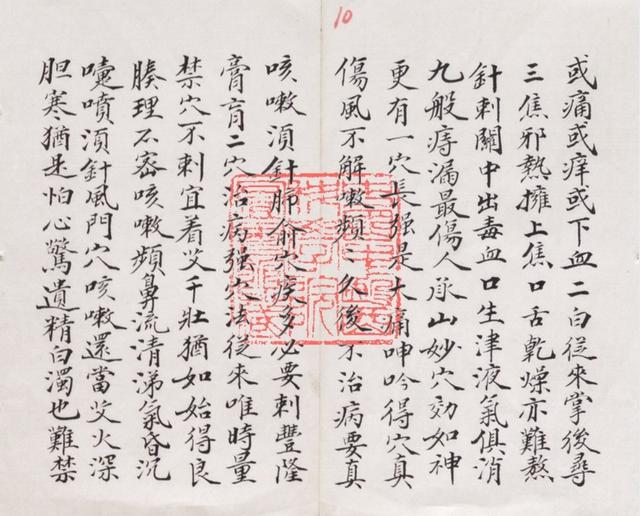 10
或痛或痒或下血二白從來掌後尋
三焦邪熱擁上焦口舌乾燥亦難熬
針刺關中出毒血口生津液氣俱消
九般痔漏最傷人承山妙穴効如神
更有一穴長强是大痛呻吟得穴真
傷風不解嗽頻〻久後不治病要真
咳嗽湏針肺俞穴痰多必要刺豐隆
膏肓二穴治病强穴法從來唯時量
禁穴不刺宜着艾千壯猶如始得良
腠理不密咳嗽頻鼻流清涕氣昏沉
嚏噴湏針風門穴咳嗽還當艾火深
胆寒猶是怕心驚遺精白濁也難禁